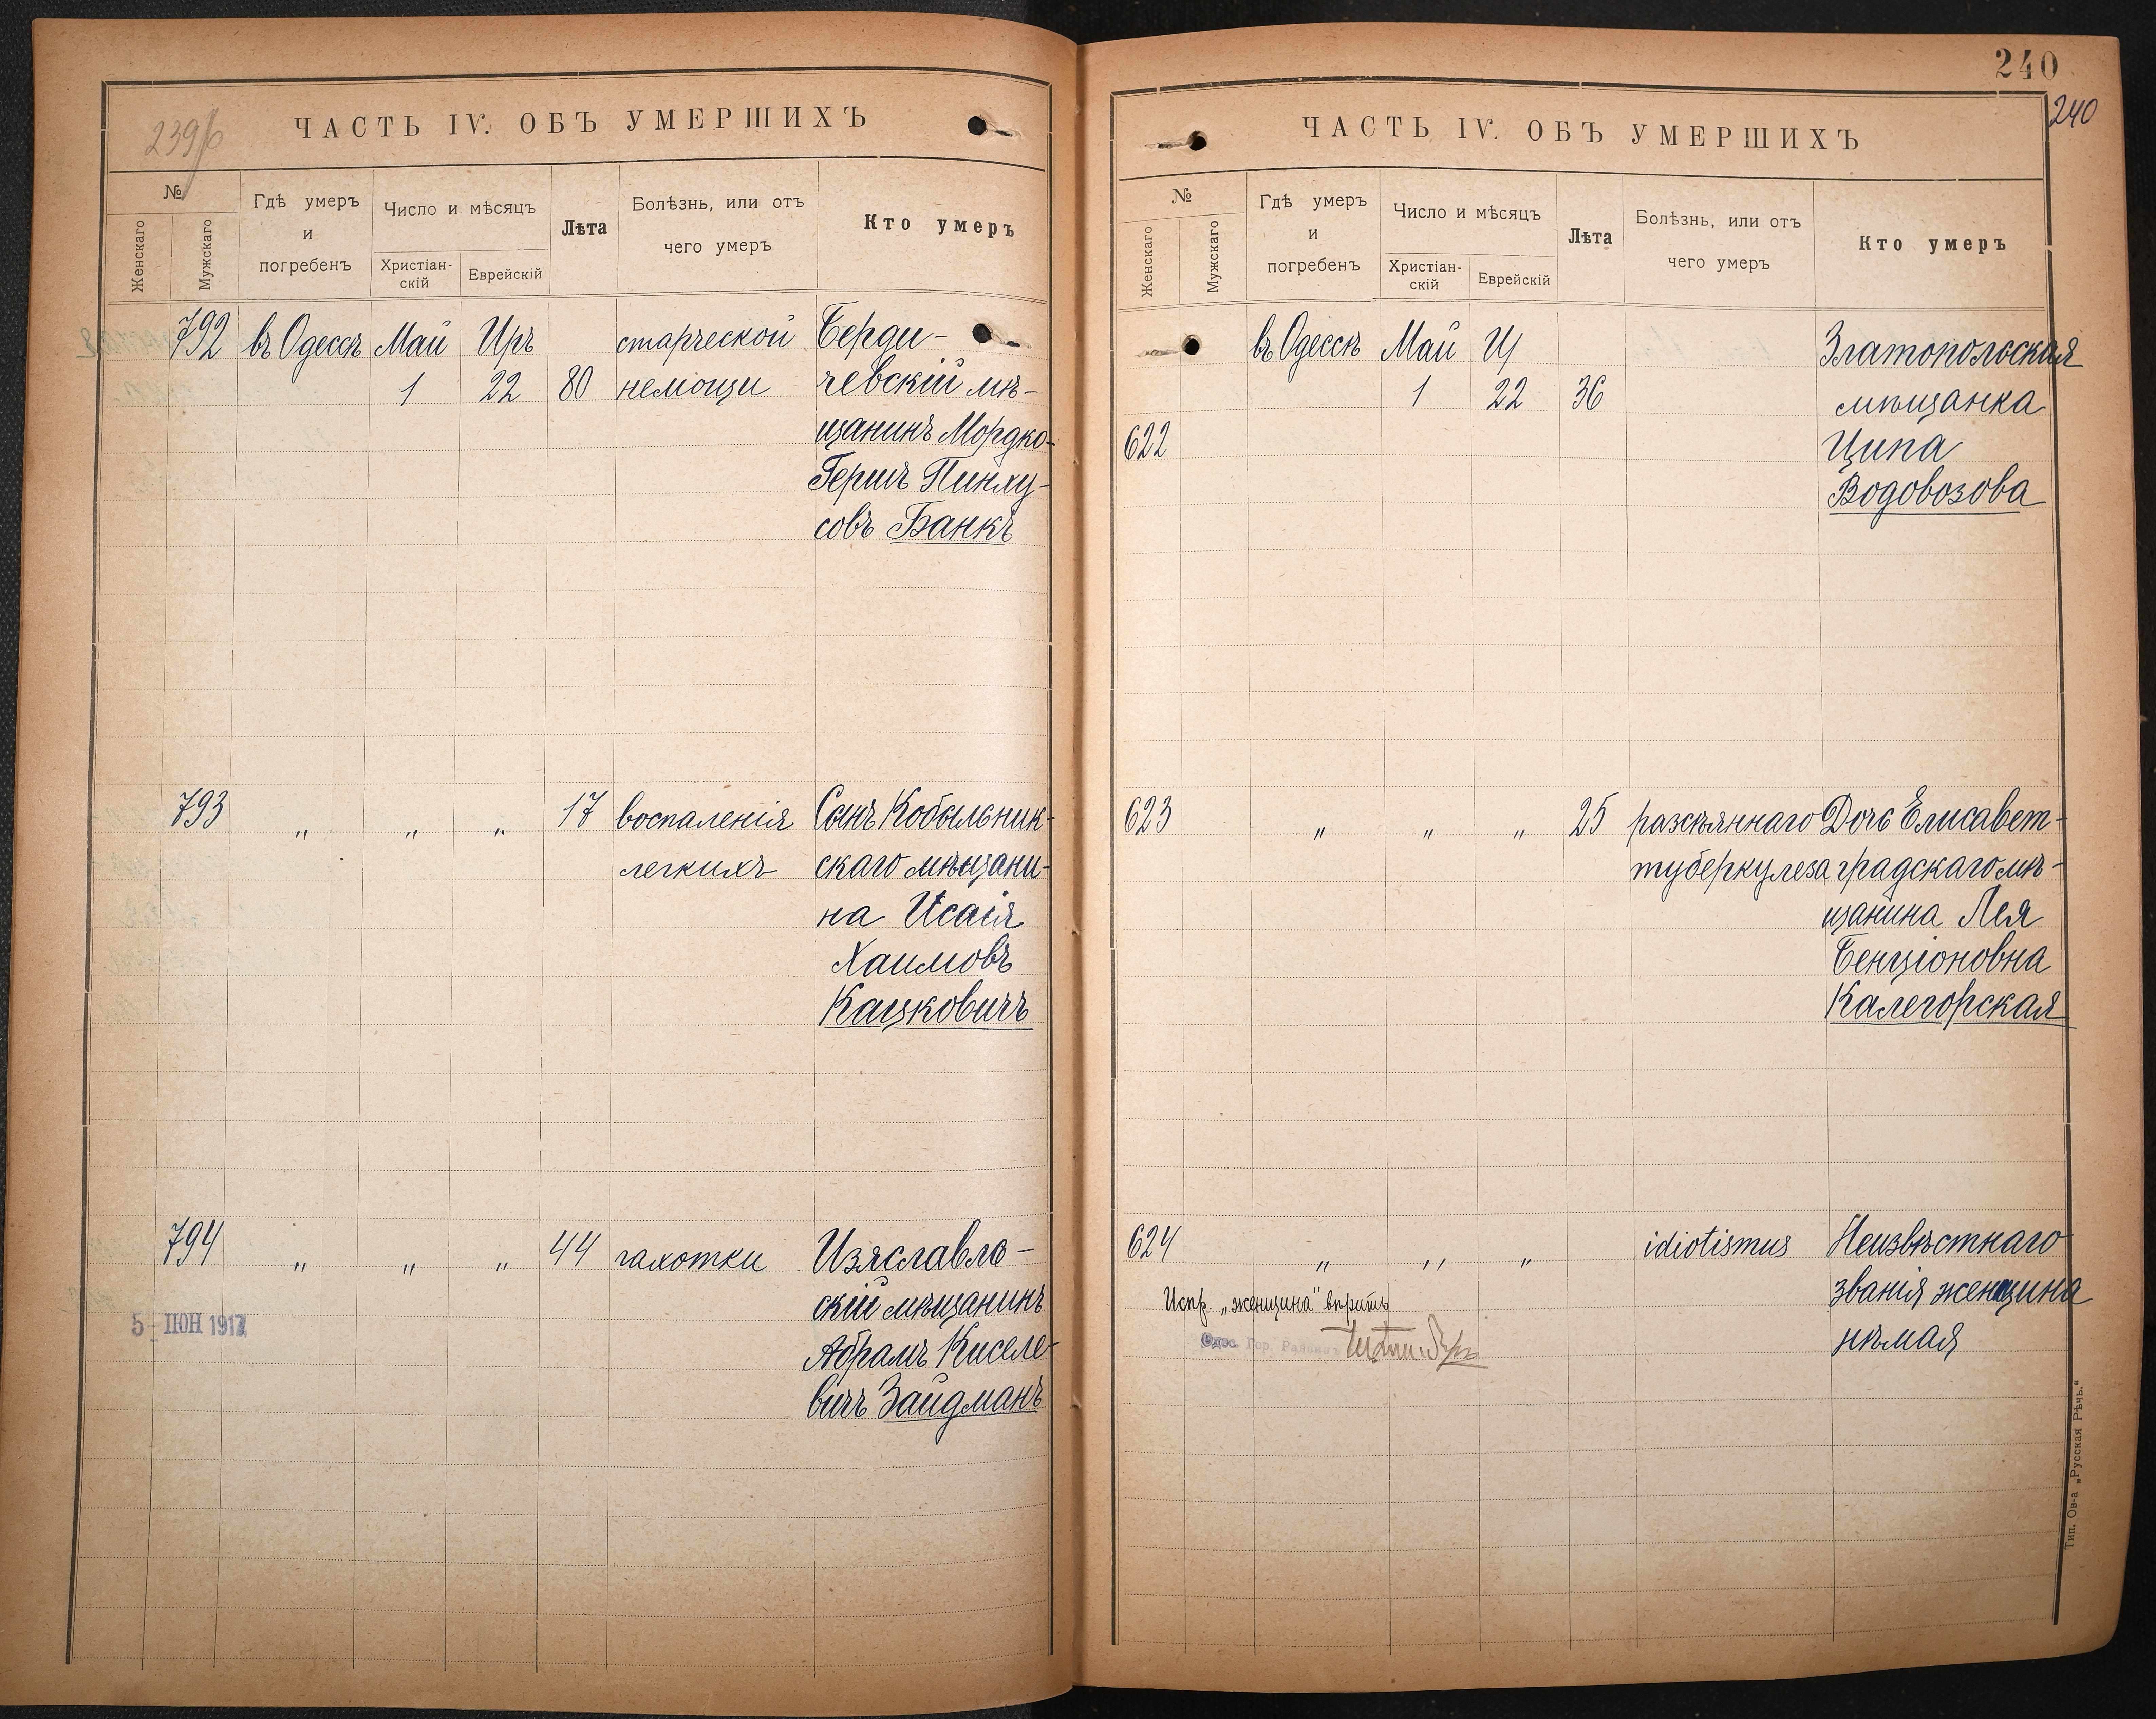 239/б
ЧАСТЬ IV. ОБЪ УМЕРШИХЪ
№
Женскаго
Мужскаго
Гдѣ умеръ
и
погребенъ
Число и мѣсяцъ
Христіан-
скій
Еврейскій
Лѣта
Болѣзнь, или отъ
чего умеръ
Кто умеръ
792 въ Одессѣ Май Иръ старческой Берди-
1 22 80 немощи чевскій мѣ-
щанинъ Мордко-
Гершъ Пинху-
совъ Банкъ
793 " " " 17 воспаленія Сынъ Кобыльник-
легкихъ скаго мѣщани-
на Исаія
Хаимовъ
Кацковичъ
794 " " " 44 чахотки Изяславль-
скій мѣщанинъ
Абрамъ Киселе-
вичъ Зайдманъ
5 - ІЮН 1917
240
240
ЧАСТЬ IV. ОБЪ УМЕРШИХЪ
№
Женскаго
Мужскаго
Гдѣ умеръ
и
погребенъ
Число и мѣсяцъ
Христіан-
скій
Еврейскій
Лѣта
Болѣзнь, или отъ
чего умеръ
Кто умеръ
въ Одессѣ Май Златопольская
1 22 36 мѣщанка
622 Ципа
Водовозова
623 " " " 25 разсѣяннаго Дочь Елисавет-
туберкулеза градскаго мѣ-
щанина Лея
Бенціоновна
Калегорская
624 " " " idiotismus Неизвѣстнаго
Испр. „женщина" вѣрить званія женщина
Одес. Гор. Раввинъ нѣмая
Тип. Ов-а „Русская Рѣчь."